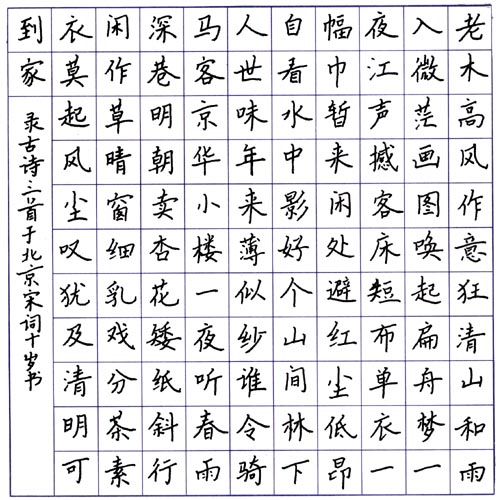 老木高风作意狂清山和雨
入微茫画图唤起扁舟梦一
夜江声撼客床短布单衣一
幅巾暂来闲处避红尘低昂
自看水中影好个山间林下
人世味年来薄似纱谁令骑
马客京华小楼一夜听春雨
深巷明朝卖杏花矮纸斜行
闲作草晴窗细乳戏分茶素
衣莫起风尘叹犹及清明可
到家
录古诗三首于北京宋词十岁书